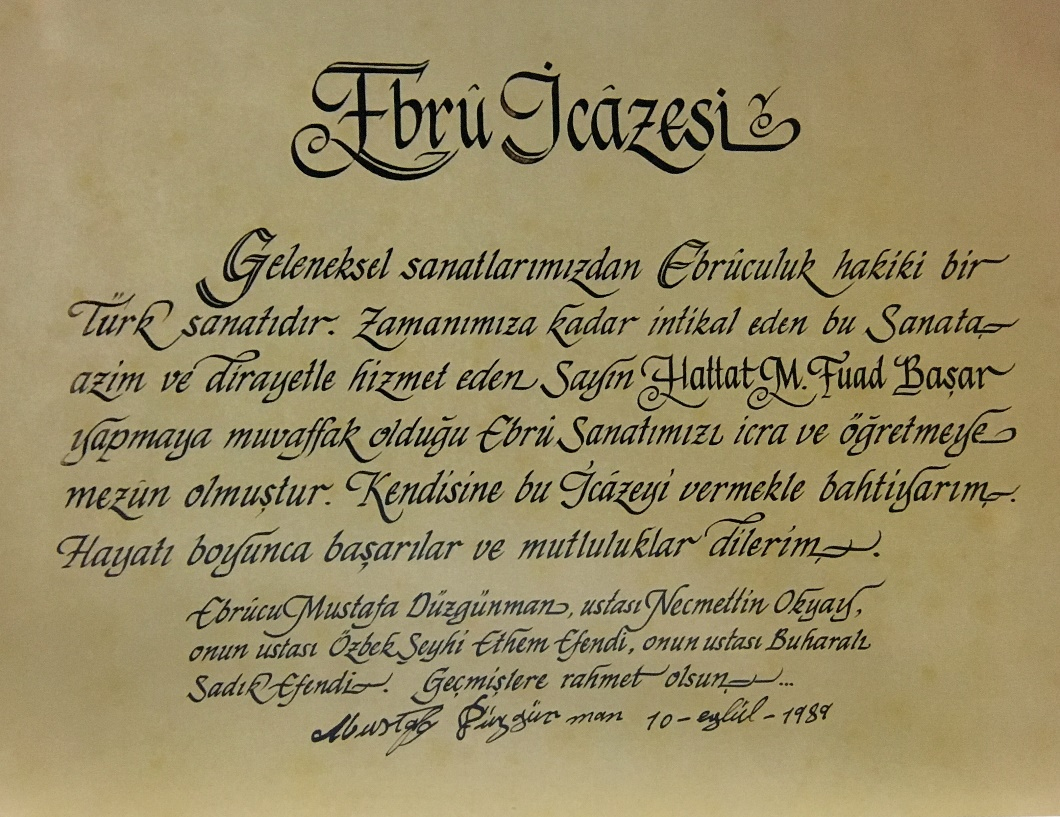 Ebrû İcâzesi
Geleneksel sanatlarımızdan Ebrûculuk hakiki bir
Türk sanatıdır. Zamanımıza kadar intikal eden bu Sanata
azim ve dirayetle hizmet eden Sayın Hattat M. Fuad Başar
yapmaya muvaffak olduğu Ebrû Sanatımızı icra ve öğretmeye
mezûn olmuştur. Kendisine bu İcâzeyi vermekle bahtiyarım.
Hayatı boyunca başarılar ve mutluluklar dilerim.
Ebrûcu Mustafa Düzgünman, ustası Necmettin Okyay,
onun ustası Özbek Şeyhi Ethem Efendi, onun ustası Buharalı
Sadık Efendi. Geçmişlere rahmet olsun...
Mustafa Düzgünman 10 - eylül - 1989